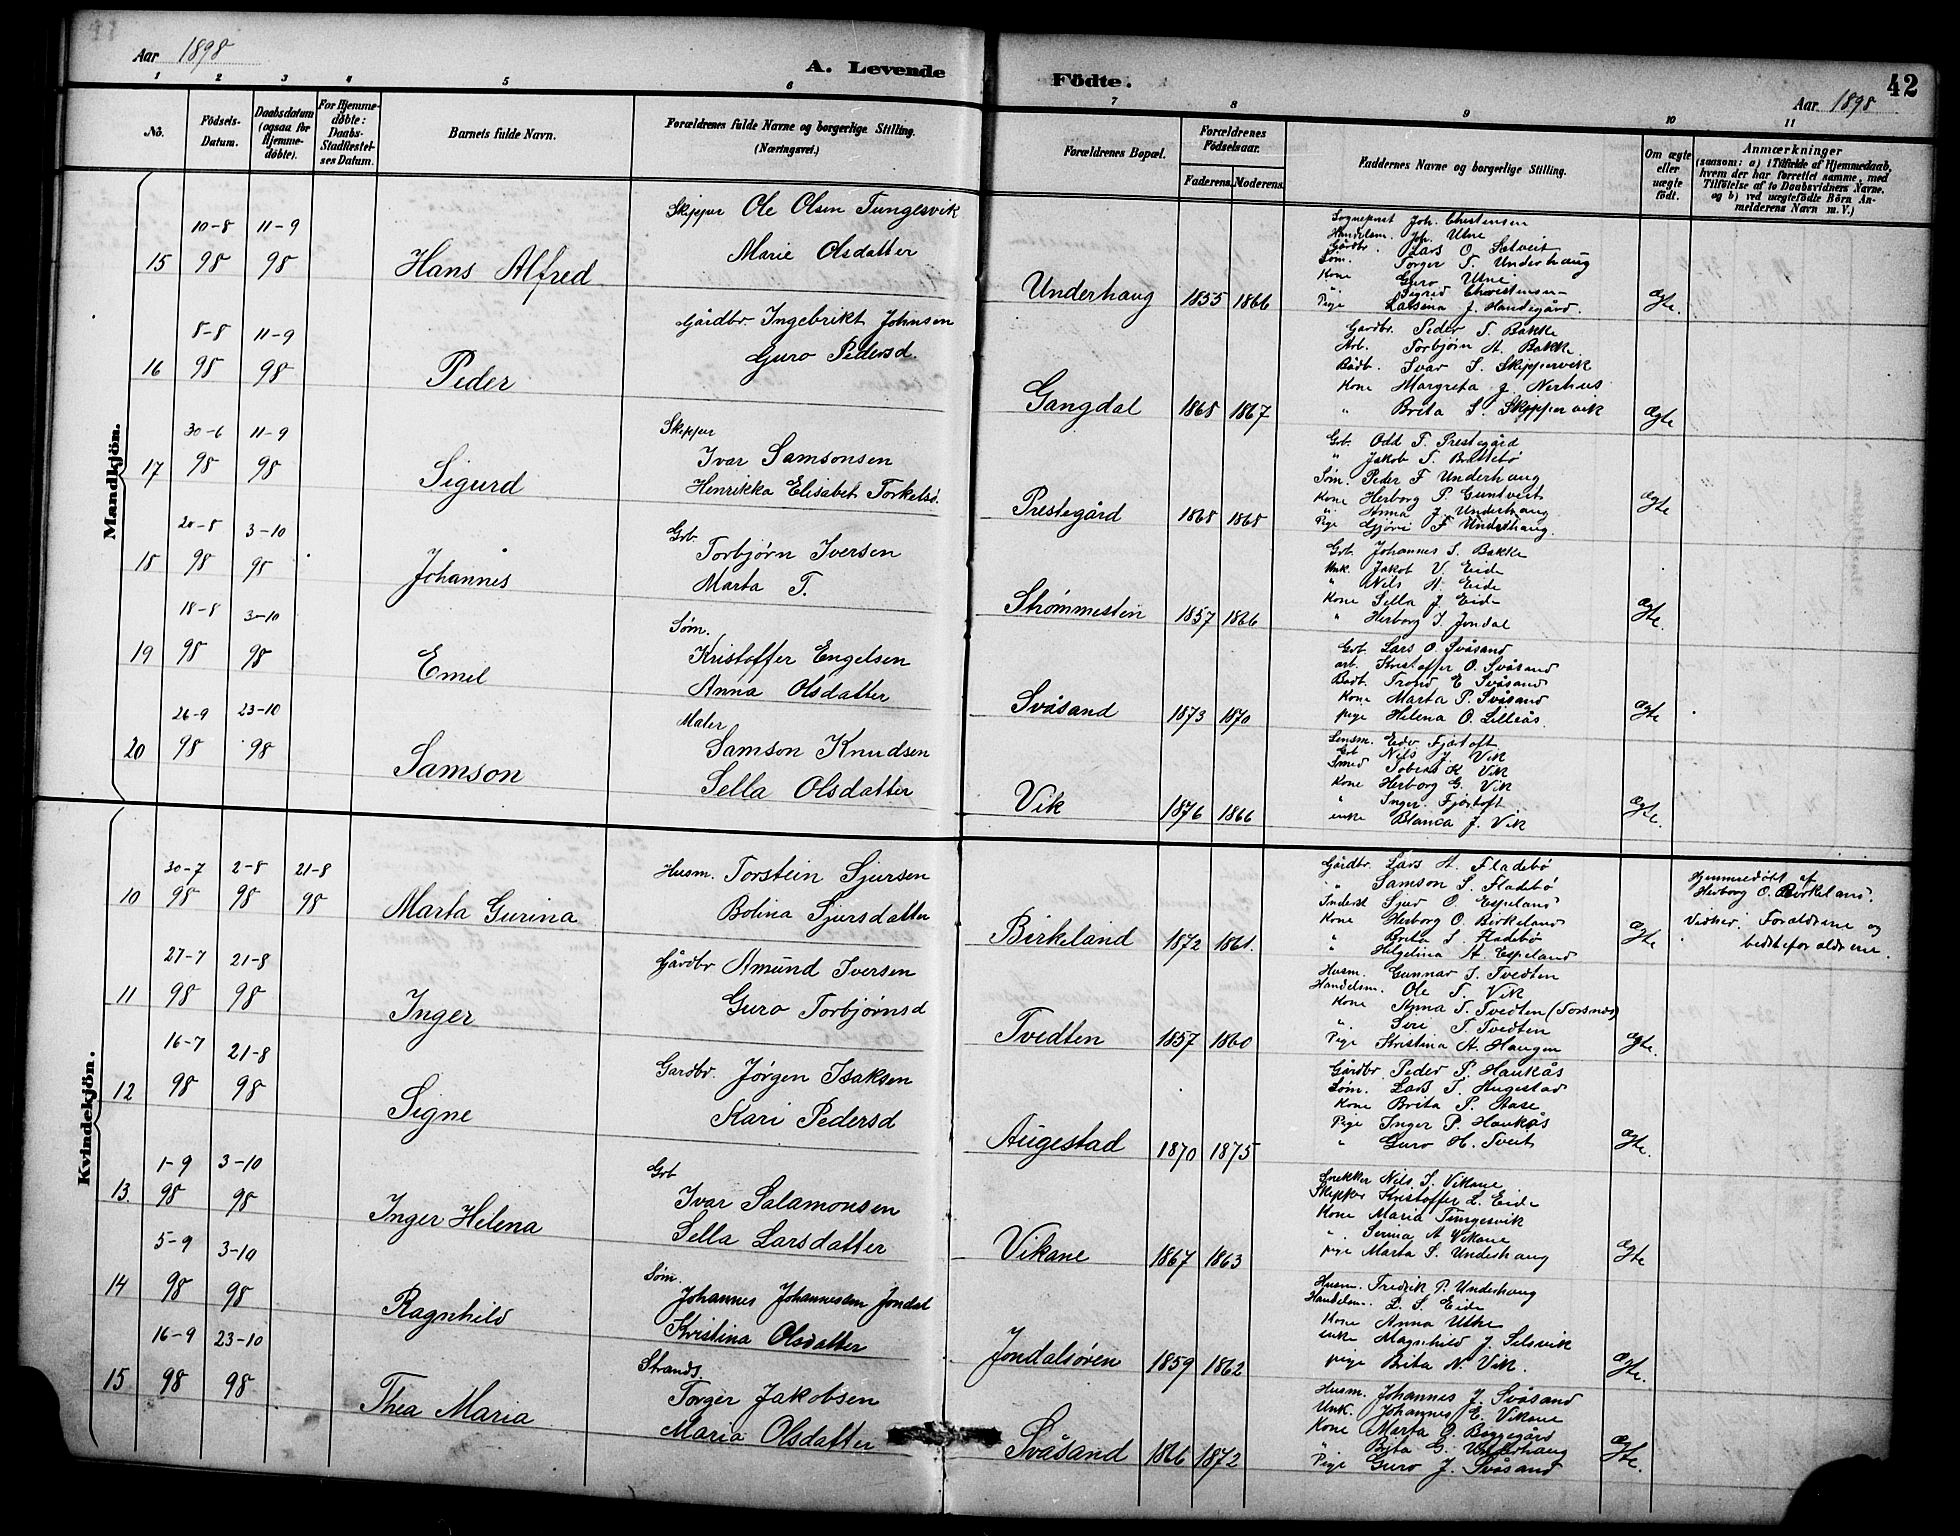 Aar 1898
A. Levende
Födte.
Aar 1898
42
1 2 3 4 5 6 7 8 9 10 11
No.
Födsels-Datum.
Daabsdatum (ogsaa for Hjemme-döbte).
For Hjemme-döbte: Daabs-Stadfæstelses Datum.
Barnets fulde Navn.
Forældrenes fulde Navne og borgerlige Stilling.
(Næringsvei.)
Forældrenes Bopæl.
Forældrenes Födselsaar.
Faderens. Moderens.
Faddernes Navne og borgerlige Stilling.
Om ægte eller uægte født.
Anmærkninger
(saasom: a) i Tilfælde af Hjemmedaab,
hvem der har forrettet samme, med
Tilföielse af to Daabsvidners Navne.
og b) ved uægtefödte Börn An-
melderens Navn m. V.)
Mandkjön.
15 10-8 98 11-9 98 Hans Alfred
Skipper Ole Olsen Tungesvik
Marie Olsdatter
Underhaug 1855 1866
Sogneprest Joh. Christensen
Handelsm. Joh. Utne
Gårdbr. Lars O. Selveit
Søm. Torger T. Underhaug
Kone Guro Utne
" Sigrid Christensen
Pige Larsina J. Handegård.
Ægte.
16 8-8 98 11-9 98 Peder
Gårdbr. Ingebrikt Johnsen
Guro Pedersd.
Gangdal 1868 1867
Gårdbr. Peder T. Bakke
Arb. Torbjørn A. Bakke
Bådb. Ivar S. Skippervik
Kone Margreta J. Nerhus
" Brita S. Skippervik
Ægte
17 30-6 98 11-9 98 Sigurd
Skipper
Ivar Samsonsen
Henrikka Elisabet Torkelsd.
Prestegård 1868 1868
Grb. Odd T. Prestegård
" Jakob T. Brattebö
Søm. Peder F. Underhaug
Kone Herborg P. Guntveit
" Anna J. Underhaug
Pige Gjøri F. Underhaug.
Ægte
18 20-8 98 3-10 98 Johannes
Grb.
Torbjørn Iversen
Marta T.
Strømmestein 1857 1866
Grb. Johannes S. Bakke
Unk. Jakob V. Eide
" Nils A. Eide
Kone Sella J. Eide
" Herborg I. Jondal
Ægte.
19 18-8 98 3-10 98 Emel
Søm.
Kristoffer Engelsen
Anna Olsdatter
Svåsand 1873 1870
Grb. Lars O. Svåsand
arb. Kristoffer O. Svåsand
Bådb. Trond E. Svåsand
Kone Marta P. Svåsand
pige Helena O. Lilleås.
Ægte
20 26-9 98 23-10 98 Samson
Maler
Samson Knudsen
Sella Olsdatter
Vik 1876 1866
Lensm. Edv. Fjørtoft
Grb. Nils J. Vik
Smed Tobias K. Vik
Kone Herborg G. Vik
" Inger Fjørtoft
enke Blanca J. Vik
Ægte.
Kvindekjön.
10 30-7 98 2-8 98 21-8 98 Marta Gurina
Husm. Torstein Sjursen
Bolina Sjursdatter
Birkeland 1872 1861.
Gårdbr. Lars A. Fladebö
" Samson S. Fladebö
Inderst Sjur O. Espeland
Kone Herborg O. Birkeland
" Brita S. Fladebö
" Helgelina A. Espeland
Ægte
Hjemmedöbt af
Herborg O. Birkeland.
Vidner: Forældrene og
bedsteforældrene.
11 27-7 98 21-8 98 Inger
Gårdbr Amund Iversen
Guro Torbjørnsd
Tvedten 1857 1860
Husm. Gunnar I. Tvedten
Handelsm. Ole T. Vik
Kone Anna T. Tvedten (Torsnes)
" Siri T. Tvedten
Pige Kristina A. Haugen
Ægte.
12 16-7 98 21-8 98 Signe
Gardbr. Jørgen Isaksen
Kari Pedersd
Augestad 1870 1875
Gårdbr. Peder P. Haukås
Søm. Lars I. Augestad
Kone Brita P. Aase
Pige Inger P. Haukås
" Guro H. Tveit
Ægte.
13. 1-9 98 3-10 98 Inger Helena
Grb
Ivar Salamonsen
Sella Larsdatter
Vikane 1867 1863
Snekker Nils I. Vikane
Skipper Kristoffer L. Eide
Kone Maria Tungesvik
" Serina A. Vikane
pige Marta S. Underhaug
Ægte
14 5-9 98 3-10 98 Ragnhild
Søm.
Johannes Johannesen Jondal
Kristina Olsdatter
Jondalsören 1859 1862
Husm. Fredrik P. Underhaug
Handelsm. L. S. Eide
Kone Anna Utne
enke Magnhild J. Selsvik
pige Brita N. Vik.
Ægte.
15 16-9 98 23-10 98 Thea Maria
Strands.
Torger Jakobsen
Maria Olsdatter
Svåsand 1866 1872
Husm. Johannes J. Svåsand
Unk. Johannes E. Vikane
Kone Marta O. Byggegård
" Brita G. Underhaug
Pige Guro J. Svåsand
Ægte.